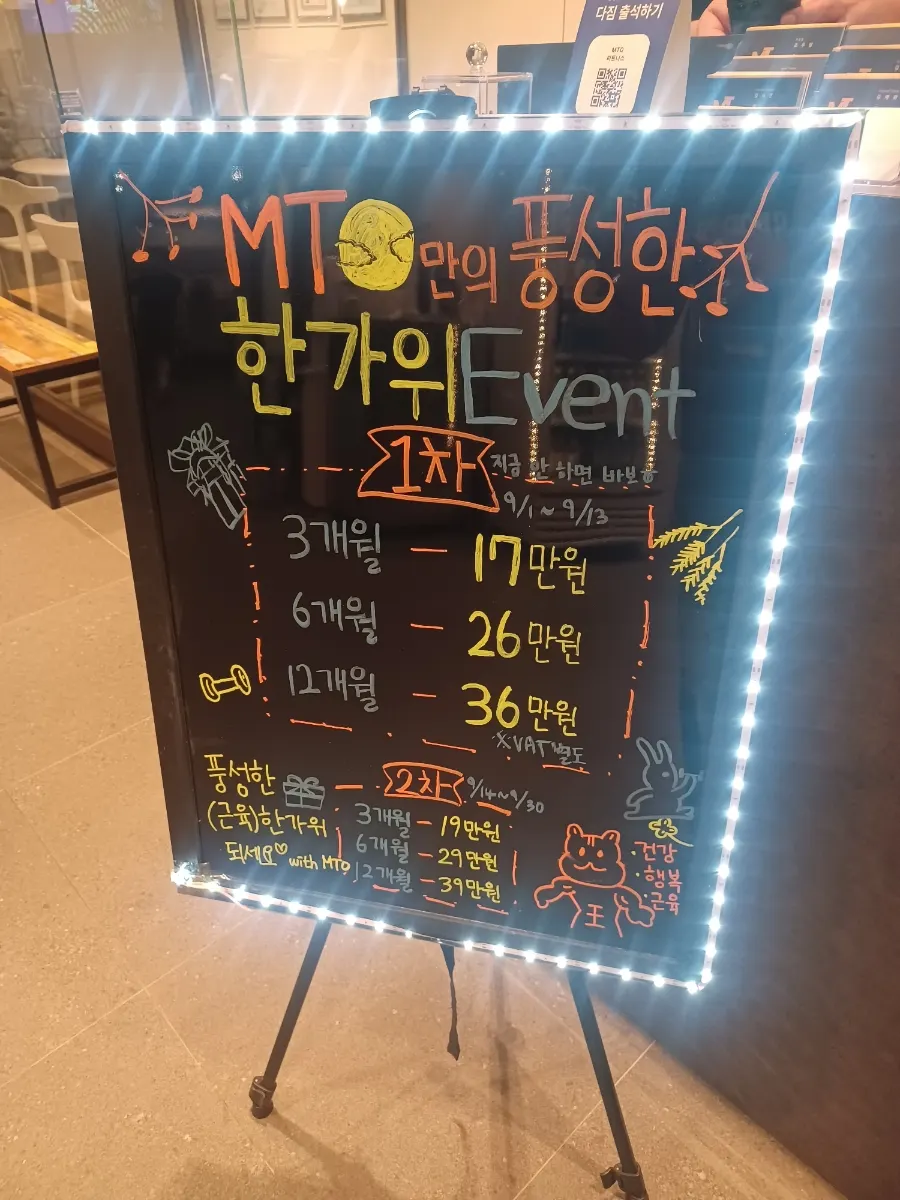 다짐 출석하기
MTO
MTO만의 풍성한
한가위Event
1차
지금 안 하면 바보
9/1~9/13
3개월 — 17만원
6개월 — 26만원
12개월 — 36만원
※VAT별도
2차 9/14~9/30
3개월 — 19만원
6개월 — 29만원
12개월 — 39만원
풍성한
(근육)한가위
되세요♡ with MTO
王
·건강
·행복
·근육